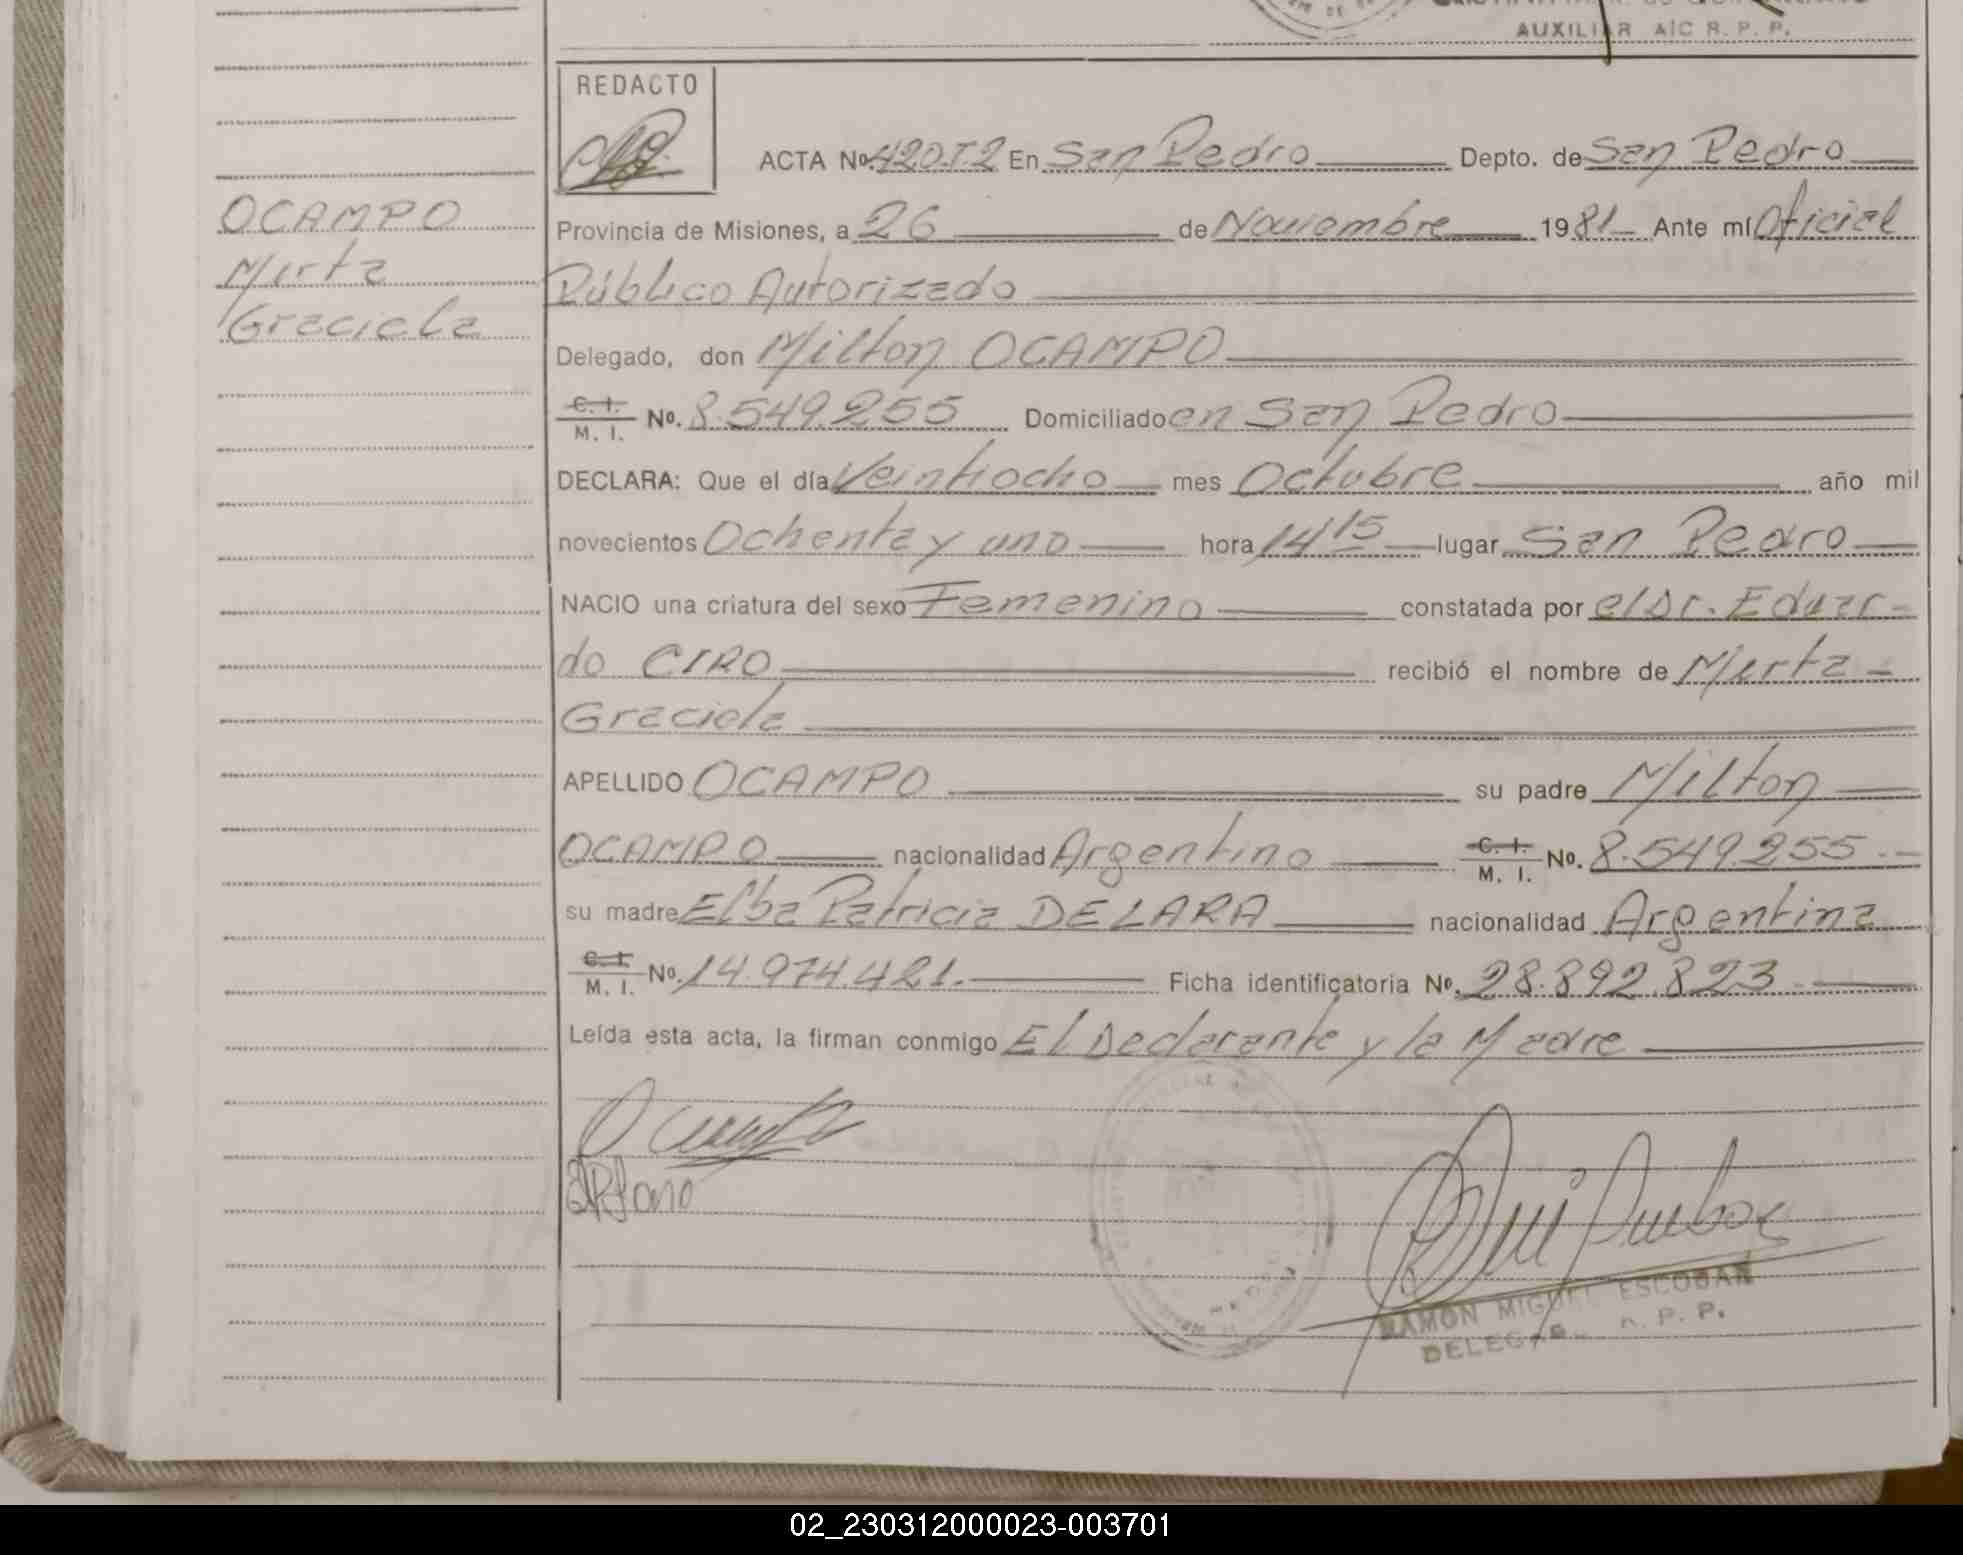 AUXILIAR A/C R. P. P.
REDACTO
ACTA Nº. 420.T.2 En San Pedro Depto. de San Pedro
OCAMPO
Mirta
Graciela
Provincia de Misiones, a 26 de Noviembre 1981 Ante mí Oficial
Público Autorizado
Delegado, don Milton OCAMPO
C. I.
M. I. Nº. 8.549.255 Domiciliado en San Pedro
DECLARA: Que el día Veintiocho mes Octubre año mil
novecientos Ochenta y uno hora 14 15 lugar San Pedro
NACIO una criatura del sexo Femenino constatada por el Dr. Eduar-
do CIRO recibió el nombre de Mirta
Graciela
APELLIDO OCAMPO su padre Milton
OCAMPO nacionalidad Argentino C. I. M. I. Nº. 8.549.255.
su madre Elba Patricia DELARA nacionalidad Argentina
C. I.
M. I. Nº. 14.974.421. Ficha identificatoria Nº. 28.892.823
Leída esta acta, la firman conmigo El Declarante y la Madre
RAMON MIGUEL ESCOBAR
DELEGAD R. P. P.
02_230312000023-003701